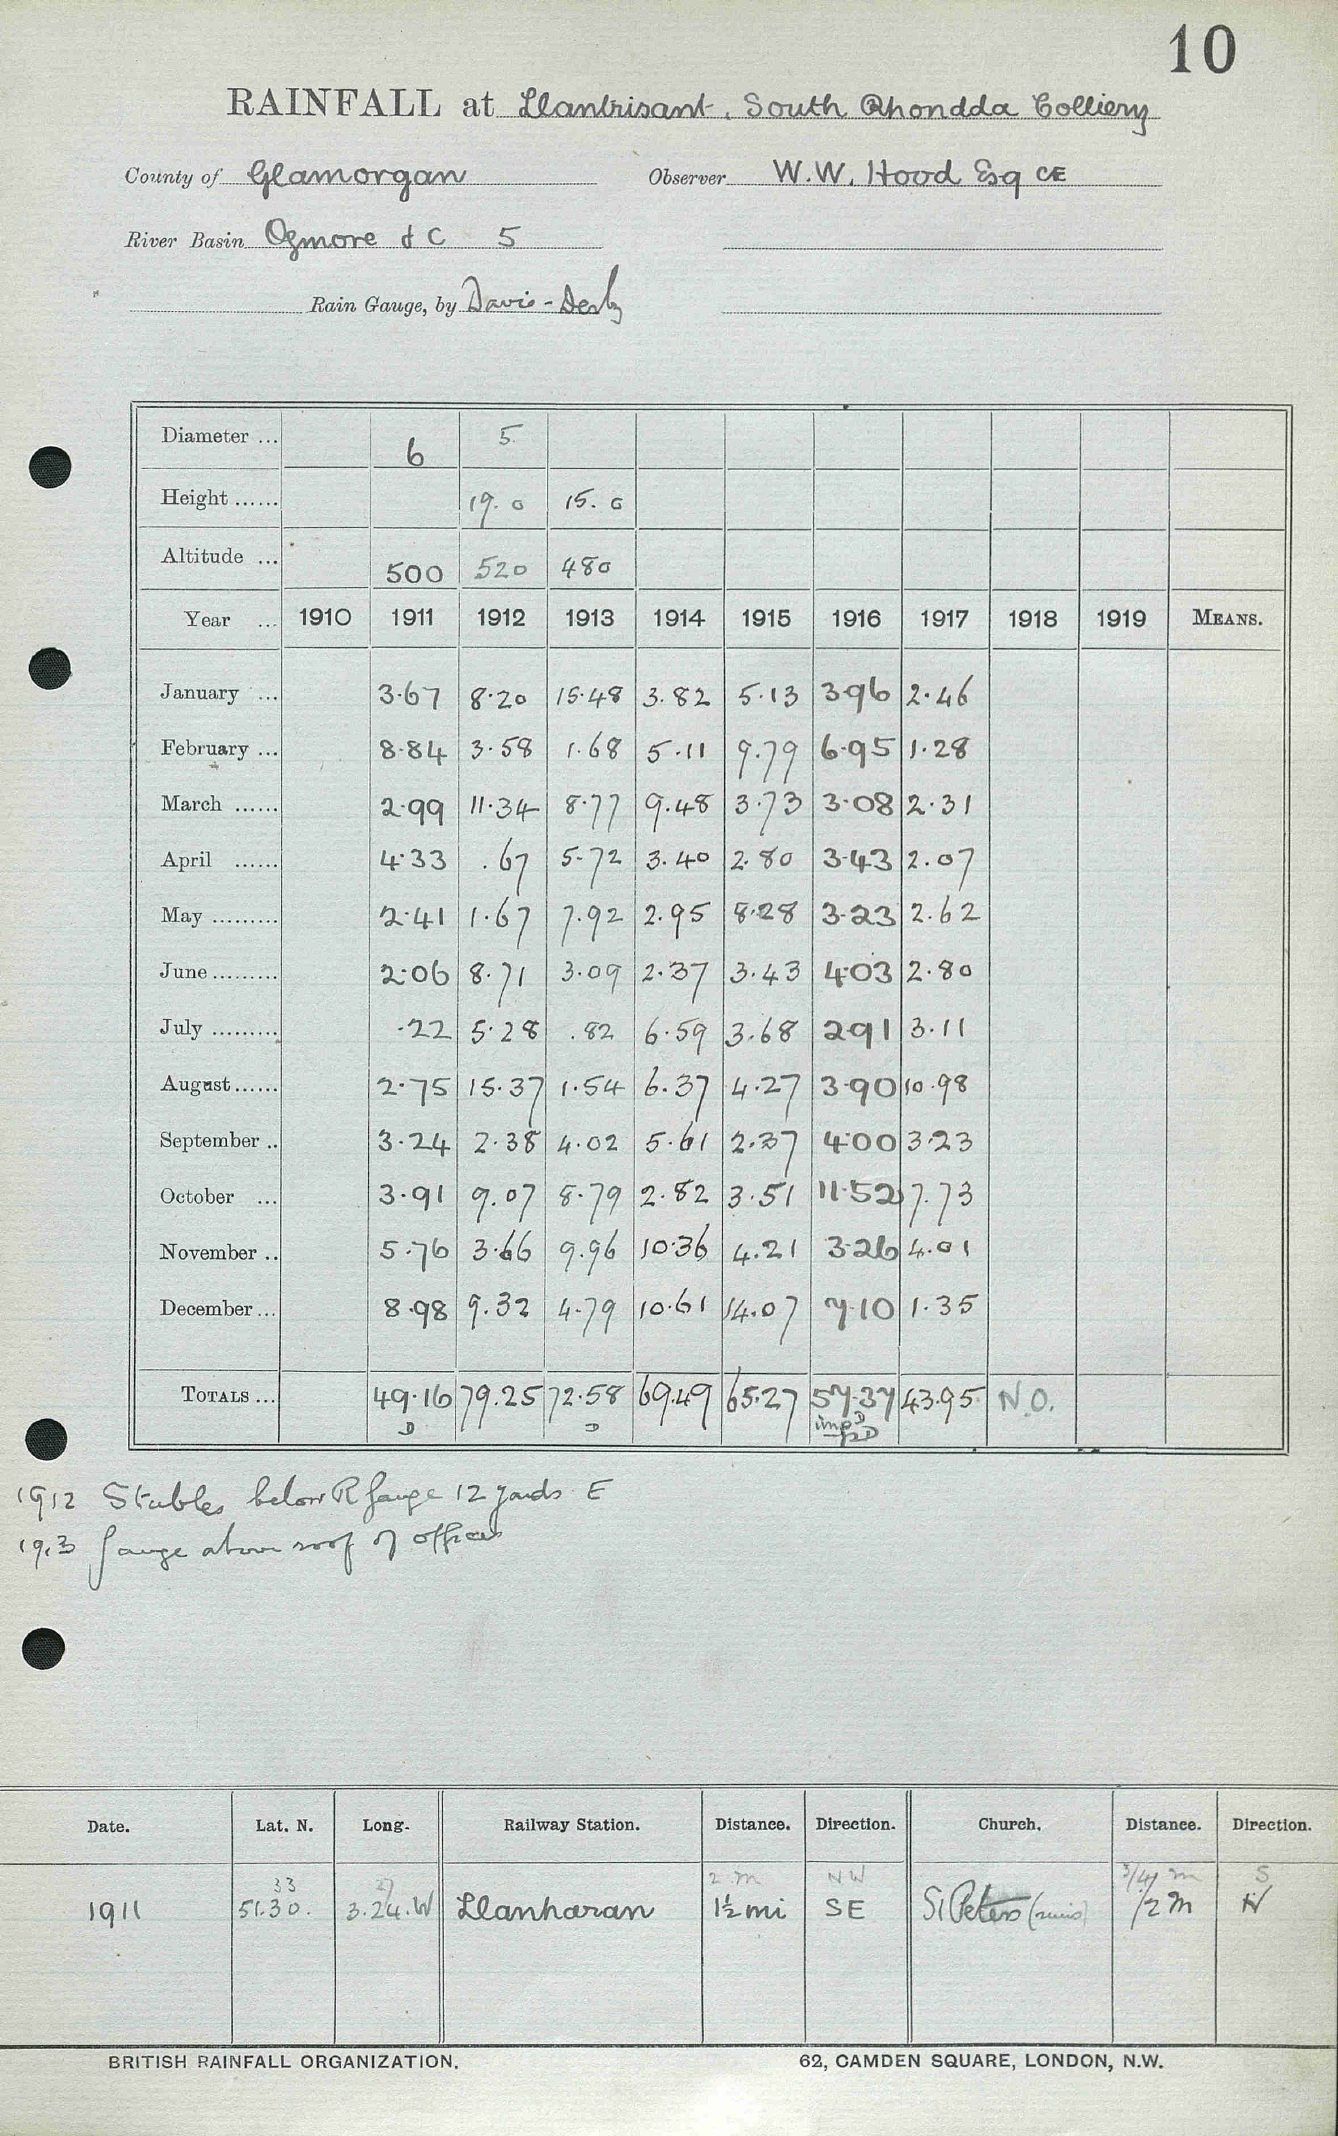 10
RAINFALL at Llantrisant, South Rhondda Colliery
County of Glamorgan Observer W.W. Hood Esq CE
River Basin Ogmore &c 5
Rain Gauge, by Davis-Derby
Diameter ... 6 5
Height ...... 19.0 15.0
Altitude ... 500 520 480
Year ... 1910 1911 1912 1913 1914 1915 1916 1917 1918 1919 MEANS.
January ... 3.67 8.20 15.48 3.82 5.13 3.96 2.46
February ... 8.84 3.58 1.68 5.11 9.79 6.95 1.28
March ...... 2.99 11.34 8.77 9.48 3.73 3.08 2.31
April ...... 4.33 .67 5.72 3.40 2.80 3.43 2.07
May ......... 2.41 1.67 7.92 2.95 8.28 3.23 2.62
June ......... 2.06 8.71 3.09 2.37 3.43 4.03 2.80
July ......... .22 5.28 .82 6.59 3.68 2.91 3.11
August...... 2.75 15.37 1.54 6.37 4.27 3.90 10.98
September .. 3.24 2.38 4.02 5.61 2.37 4.00 3.23
October ... 3.91 9.07 8.79 2.82 3.51 11.52 7.73
November .. 5.76 3.66 9.96 10.36 4.21 3.26 4.01
December ... 8.98 9.32 4.79 10.61 14.07 7.10 1.35
TOTALS ... 49.16 79.25 72.58 69.49 65.27 57.37 43.95 N.O.
D D imp D
1912 Stables below R gauge 12 yards E
1913 gauge above roof of offices
Date. Lat. N. Long. Railway Station. Distance. Direction. Church. Distance. Direction.
33 27 2 m NW 3/4 m S
1911 51.30. 3.24.W Llanharan 1½ mi SE St Peters (ruins) 1/2 m N
BRITISH RAINFALL ORGANIZATION. 62, CAMDEN SQUARE, LONDON, N.W.